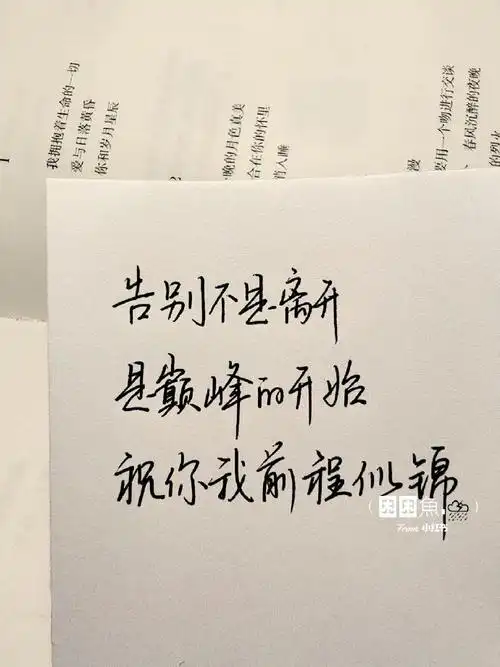 我拥抱着生命的一切
爱与日落黄昏
你和岁月星辰
晚的月色真美
合在你的怀里
肖入睡
漫
要用一个吻进行交谈
春风沉醉的夜晚
的烈火
告别不是离开
是巅峰的开始
祝你我前程似锦
困困魚
From 小红书